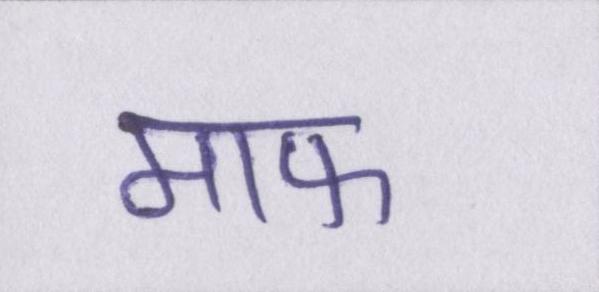 माफ